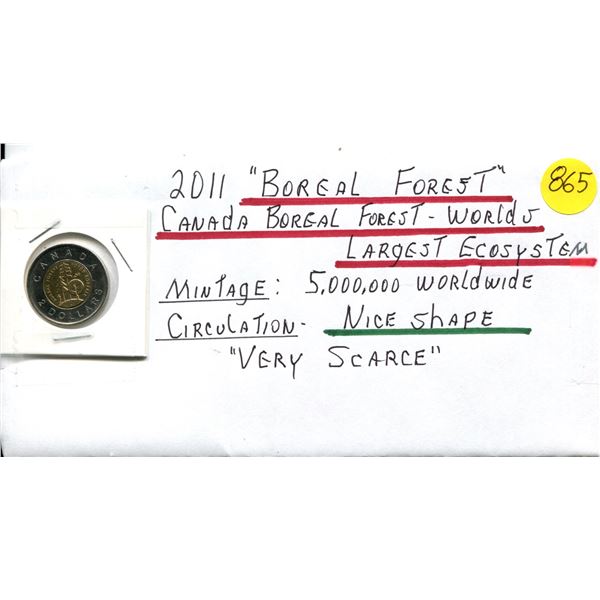 2011 "BOREAL FOREST"
865
CANADA BOREAL FOREST - WORLDS
LARGEST ECOSYSTEM
MINTAGE: 5,000,000 WORLDWIDE
CIRCULATION- NICE SHAPE
"VERY SCARCE"
CANADA
2 DOLLARS